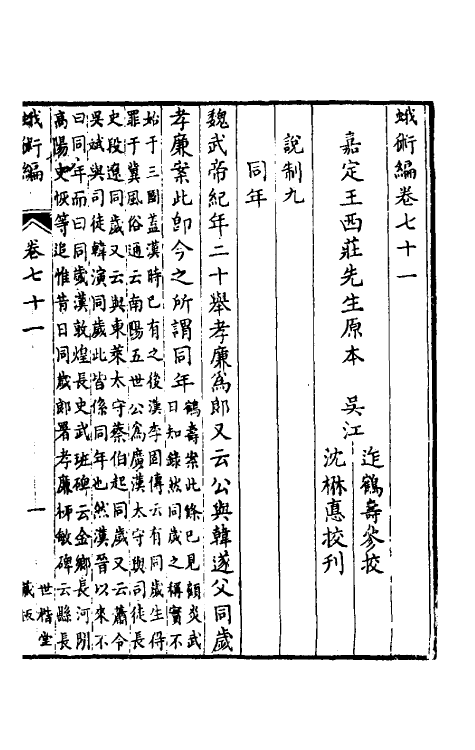 蛾術編卷七十一
嘉定王西莊先生原本　吳江
迮鶴壽參校
沈楙悳校刊
說制九
同年
魏武帝紀年二十舉孝廉爲郎又云公與韓遂父同歲
孝廉案此卽今之所謂同年
鶴壽案此條已見顧炎武
日知錄然同歲之稱實不
始于三國蓋漢時已有之後漢李固傳云有同歲生得
罪于冀風俗通云南陽五世公爲廣漢太守與司徒長
史段遼同歲又云與東萊太守蔡伯起同歲又云蕭令
吳斌與司徒韓演同歲此皆係同年也然漢晉以來不
曰同年而曰同歲漢敦煌長史武班碑云金鄉長河閒
高陽史恢等追惟昔日同歲郎署孝廉柳敏碑云縣長
蛾術編
卷七十一
一
世楷堂
藏版